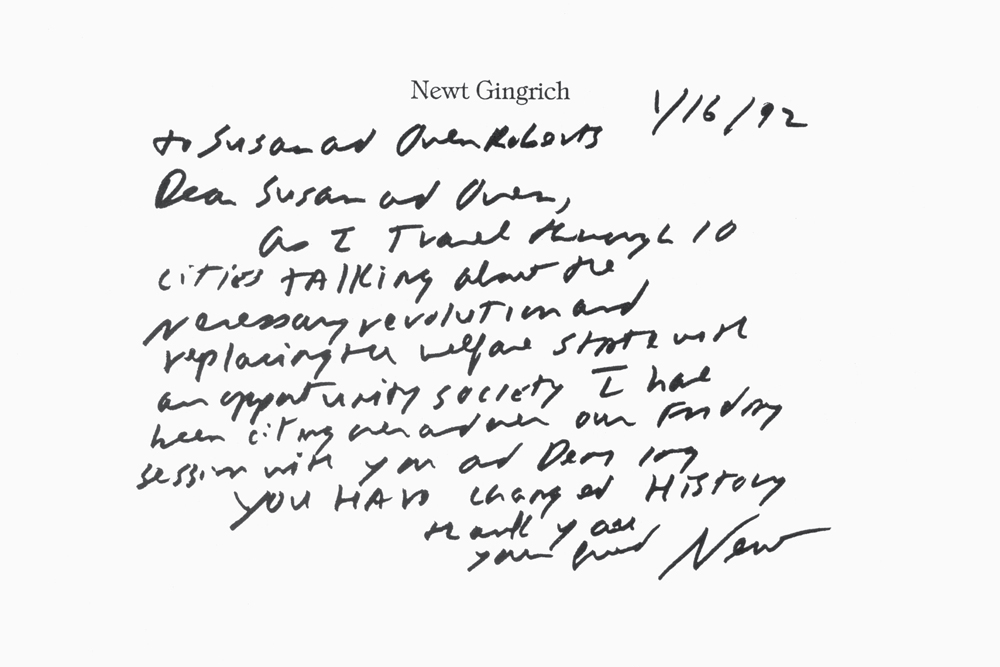 Newt Gingrich
1/16/92
to Susan and Owen Roberts
Dear Susan and Owen,
as I Travel through 10
cities talking about the
necessary revolution and
replacing the welfare state with
an opportunity society I have
been citing over and over our Friday
session with you and Deming
YOU HAVE changed HISTORY
thank you
your friend Newt